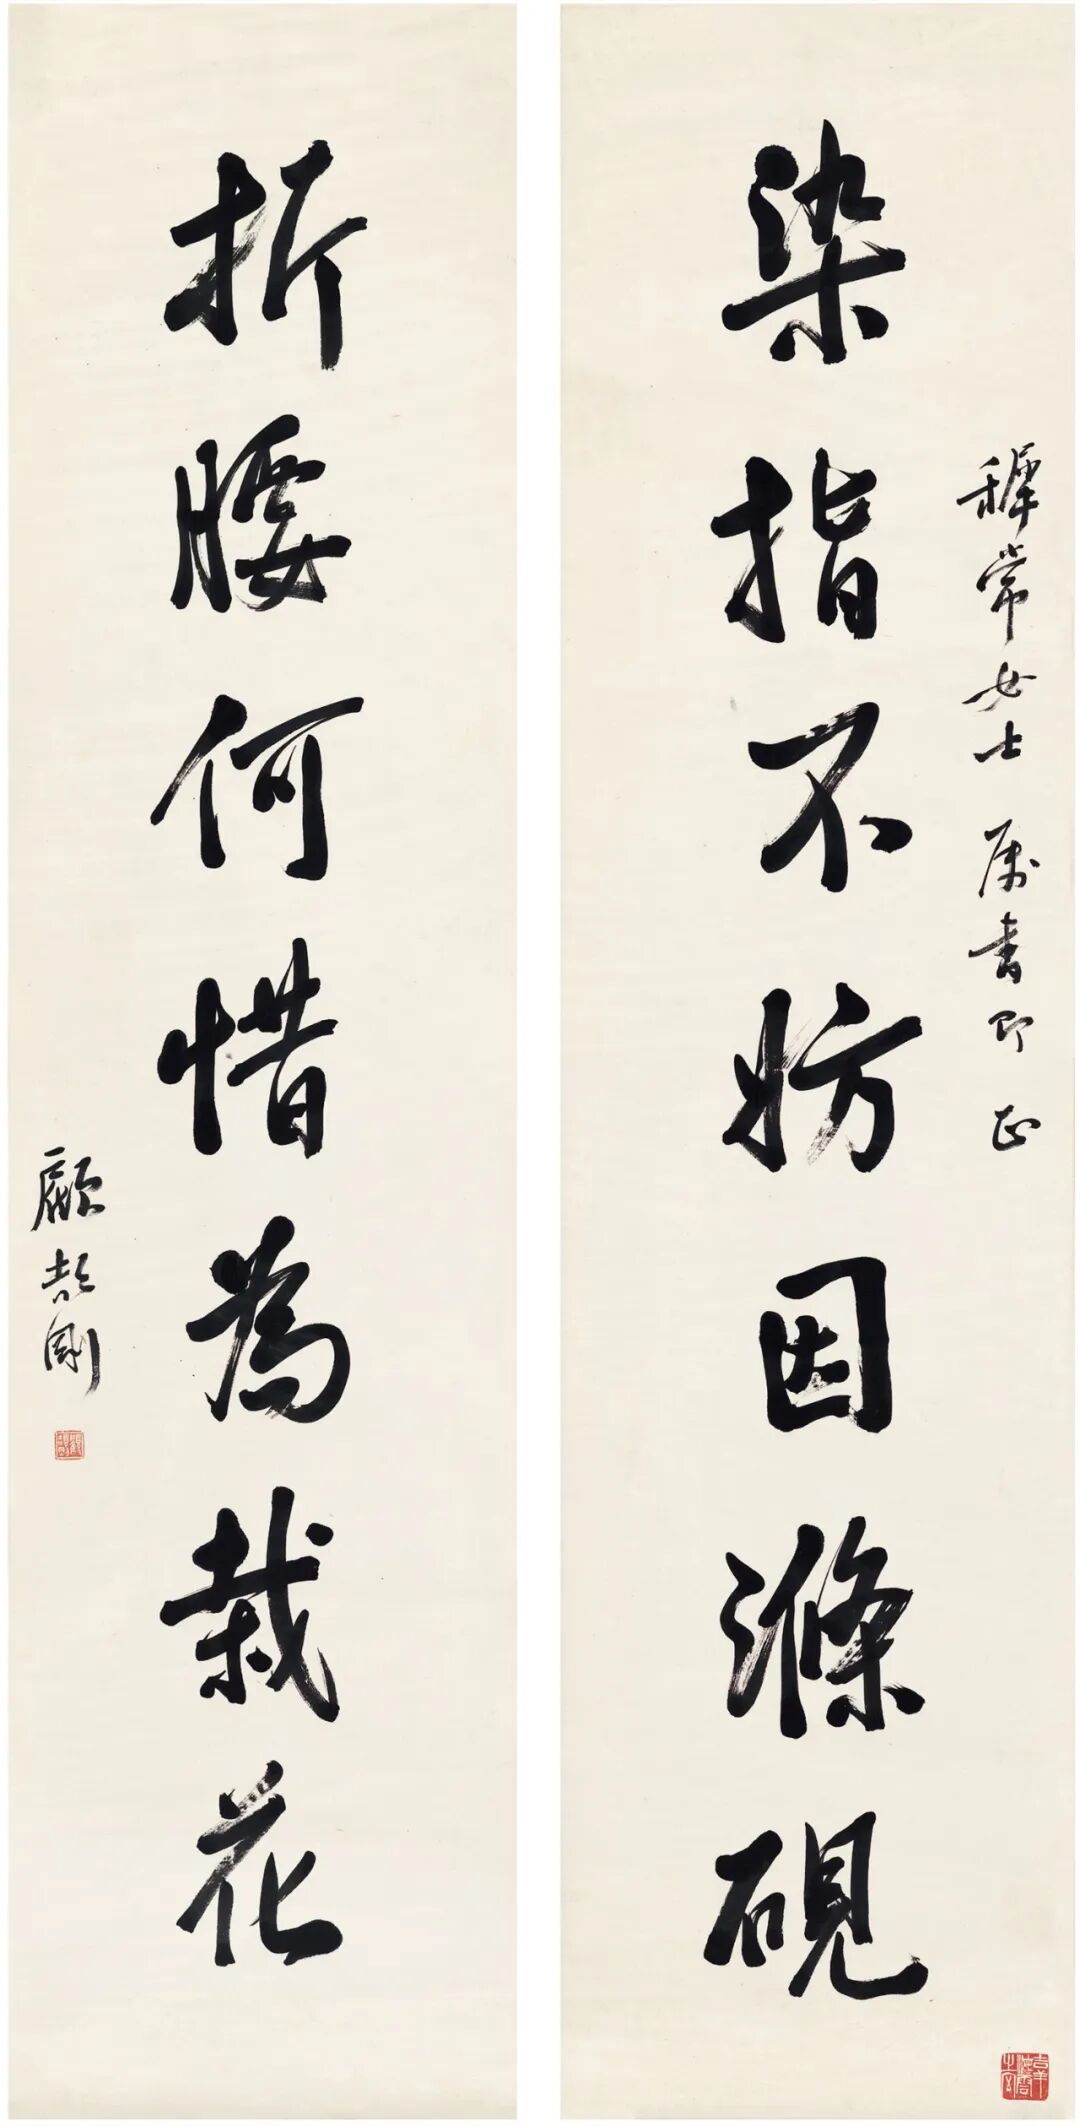 穉常女士 属書即 正
染指不妨因滌硯
折腰何惜為栽花
顧頡剛